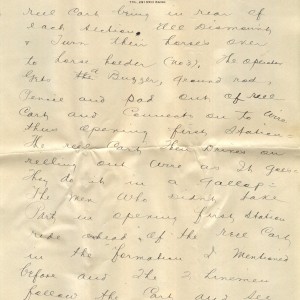 reel Cart being in rear of
each section. All Dismount
& Turn their horses over
to horse holder (no 3), The operator
Gets the Buzzer, Ground rod,
Pencil and Pad out of reel
Cart and Connects on to wire
thus opening first station =
The reel Cart then Drives on
reeling out wire as It goes
They do it in a Gallop =
The Men Who didnt take
Part in opening first station
ride ahead of the reel Cart
in the formation I Mentioned
before and The 2 Linemen
follow the Cart and see